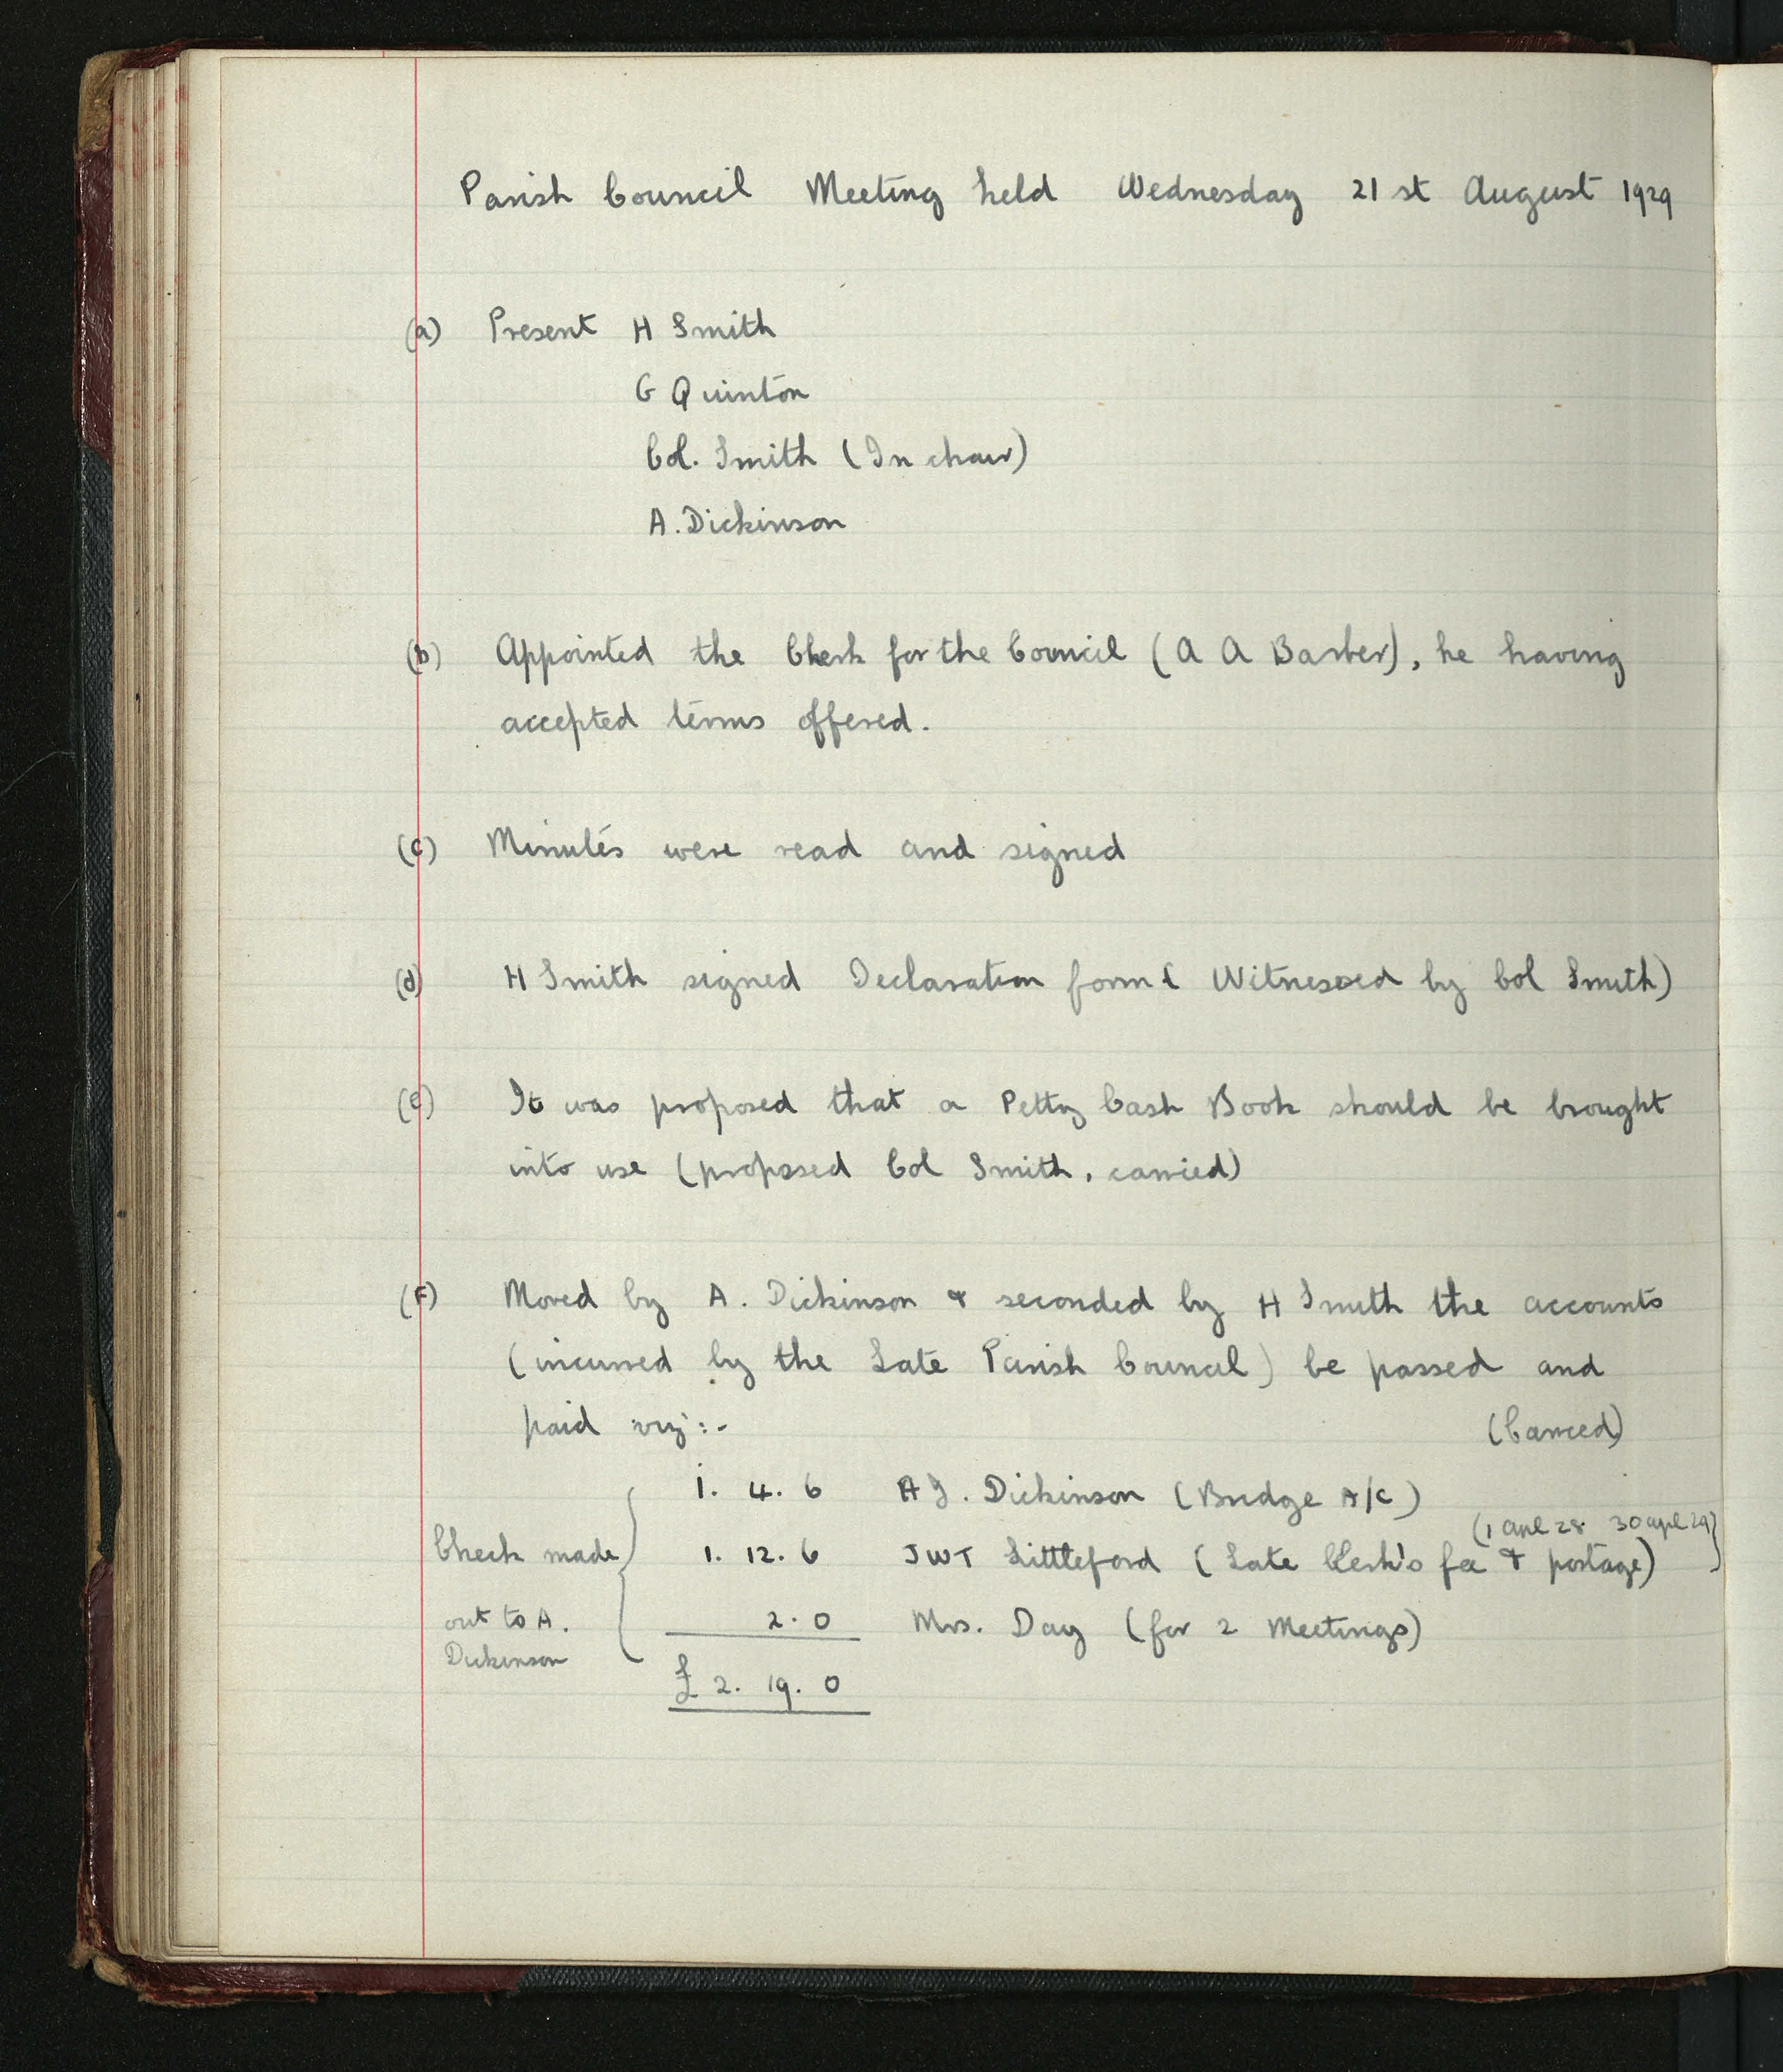 Parish Council Meeting held Wednesday 21st August 1929
(a) Present H Smith
G Quinton
Col. Smith (In chair)
A. Dickinson
(b) Appointed the Clerk for the Council (A A Barber), he having
accepted terms offered.
(c) Minutes were read and signed
(d) H Smith signed Declaration form (Witnessed by Col Smith)
(e) It was proposed that a Petty Cash Book should be brought
into use (proposed Col Smith, carried)
(f) Moved by A. Dickinson & seconded by H Smith the accounts
(incurred by the Late Parish Council) be passed and
paid viz:- (Carried)
1. 4. 6 A J. Dickinson (Bridge A/C)
(1 April 28 30 April 29)
Check made 1. 12. 6 JWT Littleford (Late Clerk's fee & postage)
out to A. 2. 0 Mrs. Day (for 2 Meetings)
Dickinson
£ 2. 19. 0